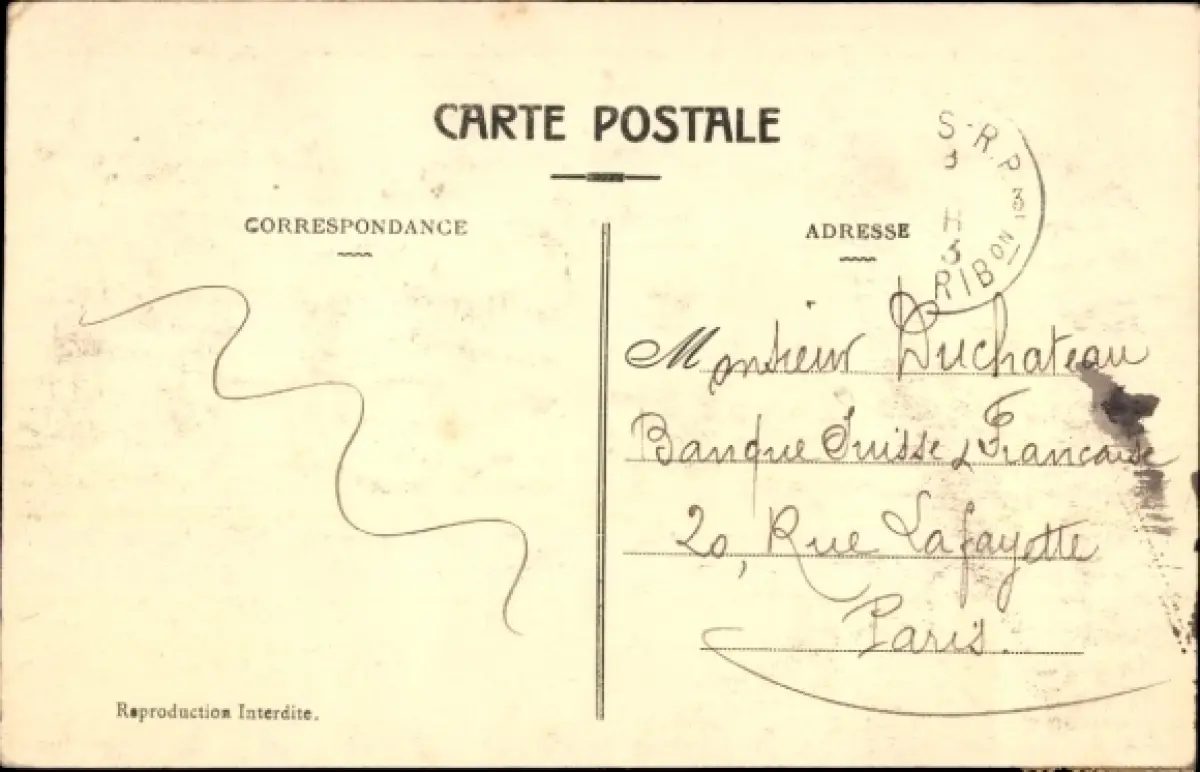 CARTE POSTALE
CORRESPONDANCE
ADRESSE
S-R.P
3
3
H
3
RIBon
Monsieur Duchateau
Banque Suisse & Francaise
20, Rue Lafayette
Paris.
Reproduction Interdite.